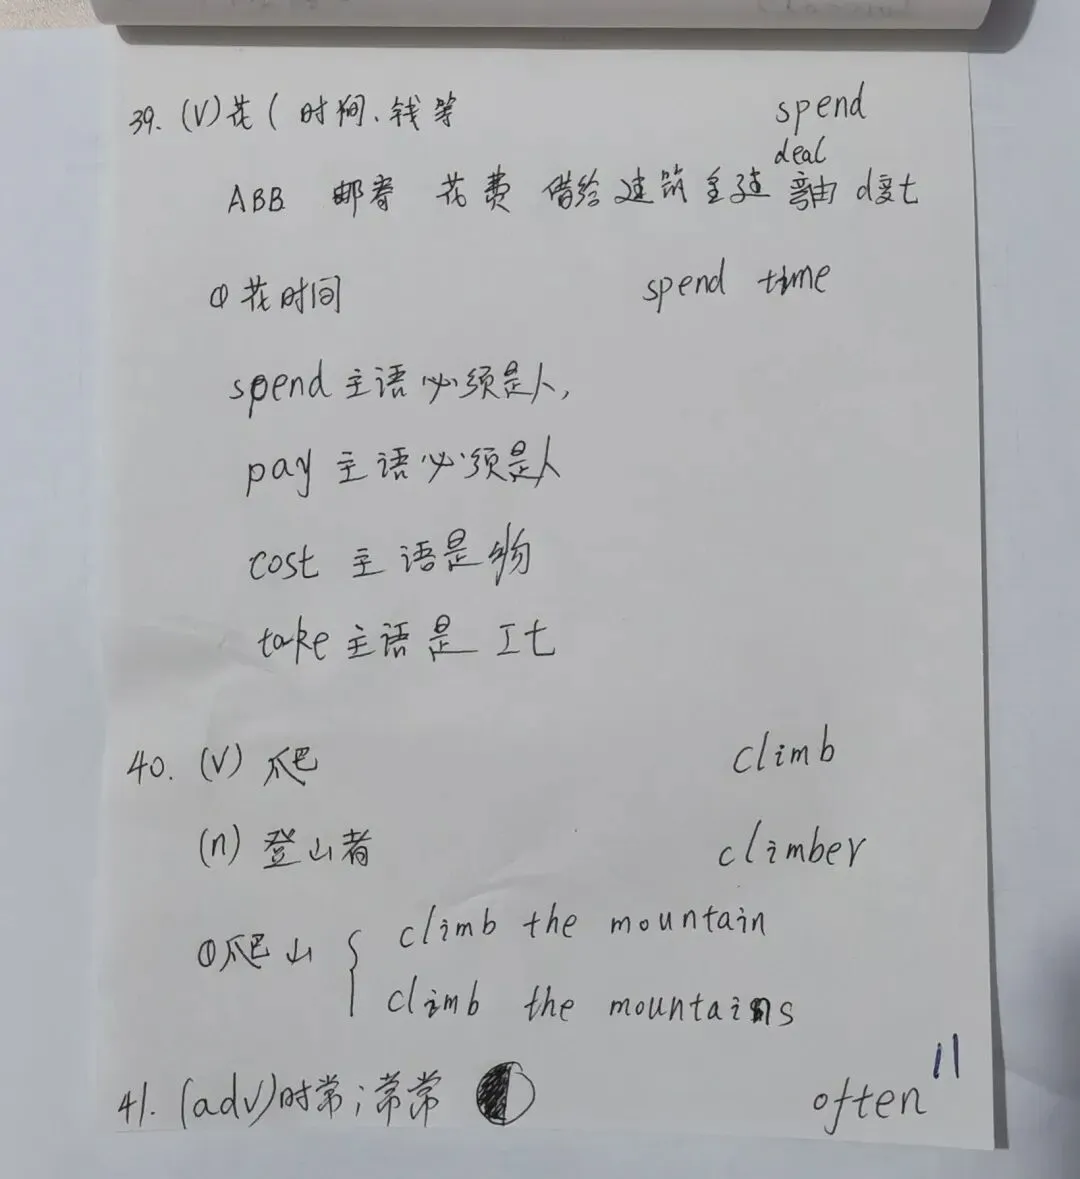 39. (V)花( 时间、钱等 spend
deal
ABB 邮寄 花费 借给 建筑 重建 弯曲 d变t
① 花时间 spend time
spend 主语必须是人,
pay 主语必须是人
cost 主语是物
take 主语是 It
40. (V) 爬 climb
(n) 登山者 climber
①爬山 { climb the mountain
climb the mountains
41. (adv)时常;常常 often
11